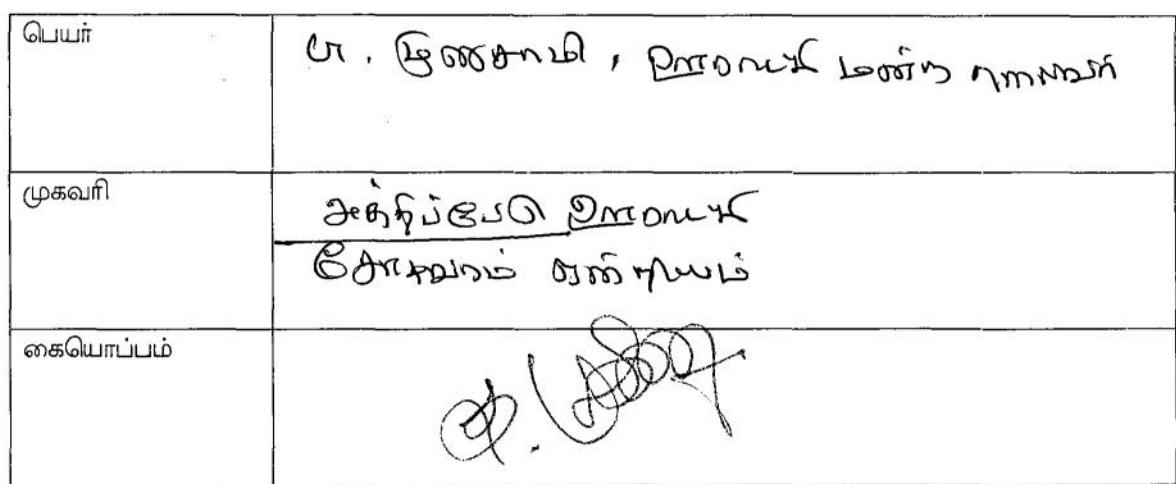 பெயர்
பா. குணசாமி, ஊராட்சி மன்ற தலைவர்
முகவரி
அத்திப்பேடு ஊராட்சி
சோழவரம் ஒன்றியம்
கையொப்பம்